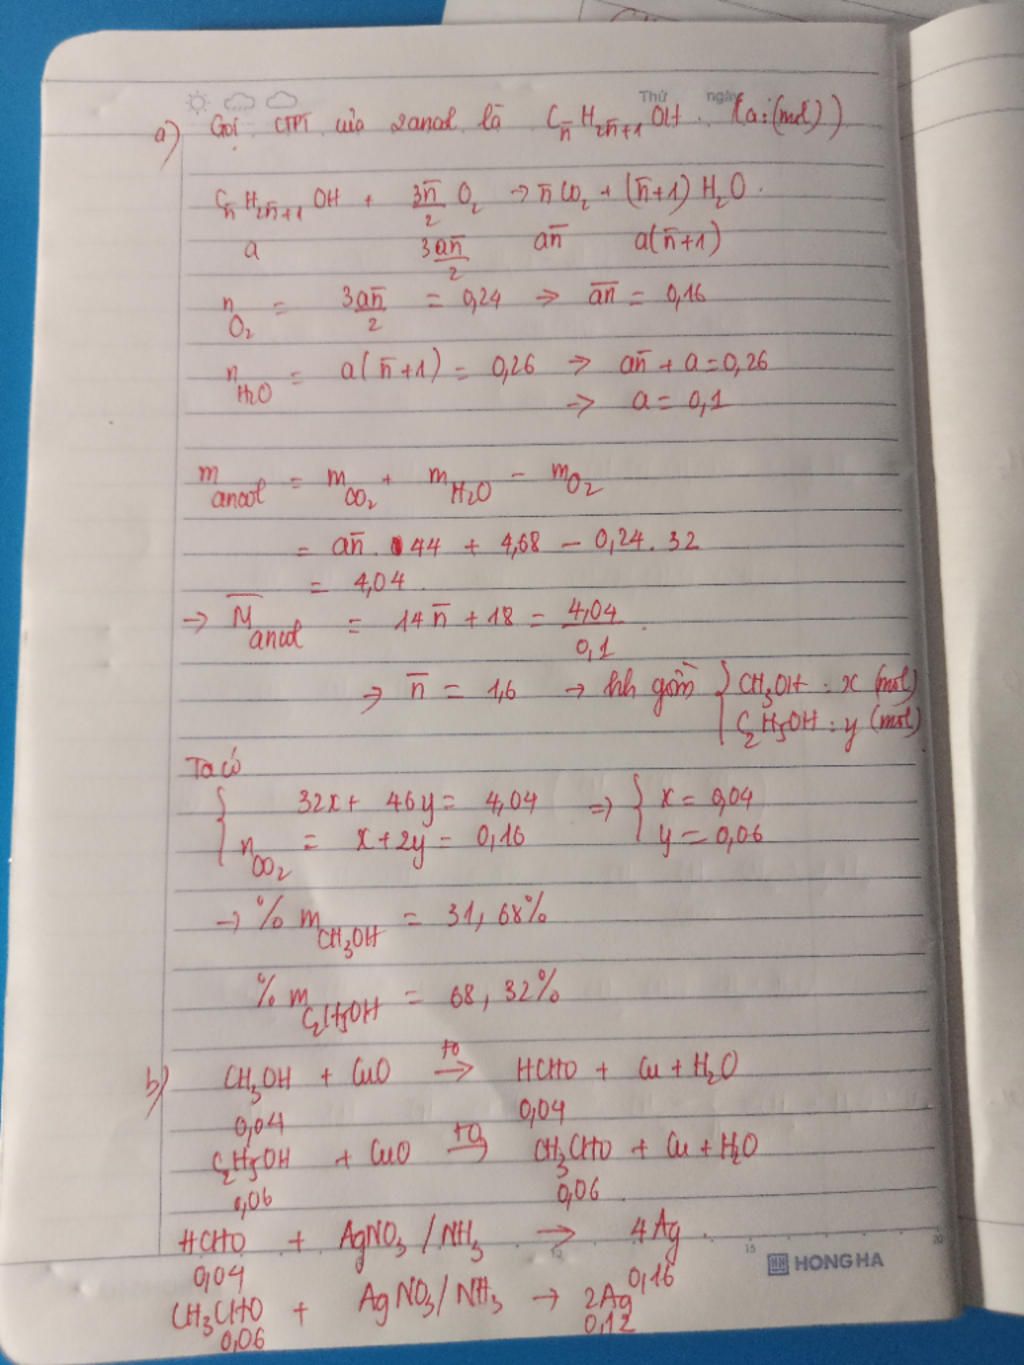 Thứ ngày
a) Gọi CTPT của 2 ancol là Cn̄H2n̄+1OH (a:(mol))
Cn̄H2n̄+1OH + 3n̄/2 O2 → n̄CO2 + (n̄+1)H2O.
a 3an̄/2 an̄ a(n̄+1)
nO2 = 3an̄/2 = 0,24 ⇒ an̄ = 0,16
nH2O = a(n̄+1) = 0,26 ⇒ an̄ + a = 0,26
⇒ a = 0,1
mancol = mCO2 + mH2O − mO2
= an̄ . 44 + 4,68 − 0,24.32
= 4,04.
→ M̄ancol = 14n̄ + 18 = 4,04/0,1.
⇒ n̄ = 1,6 → hh gồm { CH3OH : x (mol)
C2H5OH : y (mol)
Ta có
{ 32x + 46y = 4,04 ⇒ { x = 0,04
nCO2 = x + 2y = 0,16 y = 0,06
→ % mCH3OH = 31,68%
% mC2H5OH = 68,32%
b) CH3OH + CuO →to HCHO + Cu + H2O
0,04 0,04
C2H5OH + CuO →to CH3CHO + Cu + H2O
0,06 0,06.
HCHO + AgNO3 / NH3 → 4Ag.
0,04 0,16
CH3CHO + AgNO3/NH3 → 2Ag
0,06 0,12
15 20
HONG HA